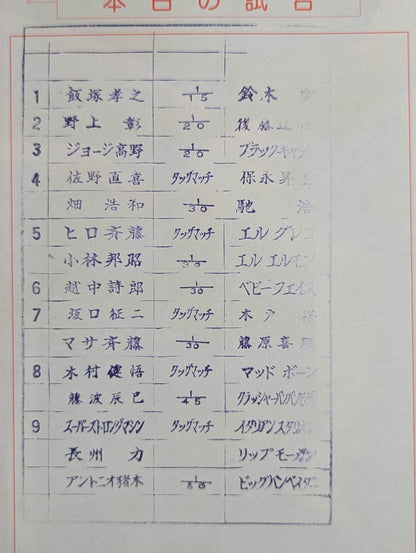 本日の試合
1 飯塚孝之 1/15 鈴木
2 野上 彰 1/20 後藤
3 ジョージ高野 1/20 ブラックキャッ
4 佐野直喜 タッグマッチ 保永昇
畑 浩和 1/30 馳 浩
5 ヒロ斉藤 タッグマッチ エルグレコ
小林邦昭 1/30 エルエルモン
6 越中詩郎 1/30 ベビーフェイス
7 坂口征二 タッグマッチ 木戸
マサ斉藤 1/30 藤原喜明
8 木村健悟 タッグマッチ マッドボーン
藤波辰巳 1/45 クラッシャーバンバン
9 スーパーストロングマシン タッグマッチ イタリアンスタリオン
長州 力 リップモーガン
アントニオ猪木 1/60 ビッグバンベイダー